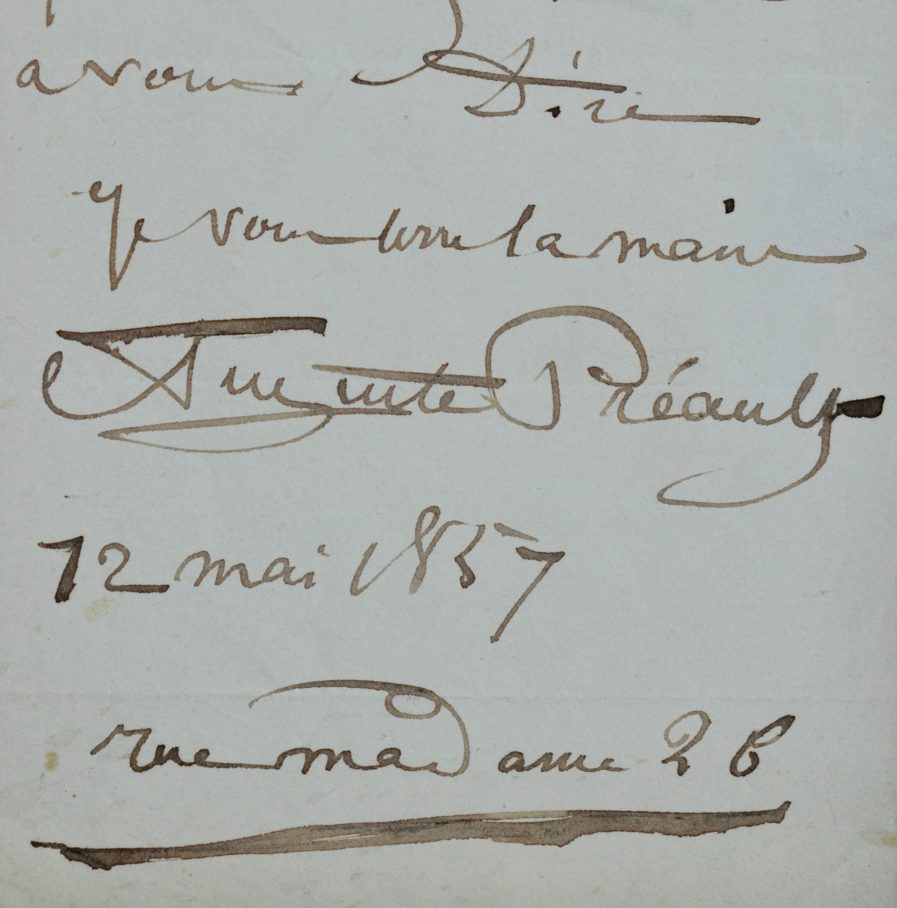 à vous Dire
Je vous serre la main
Auguste Préault
12 mai 1857
rue madame 26